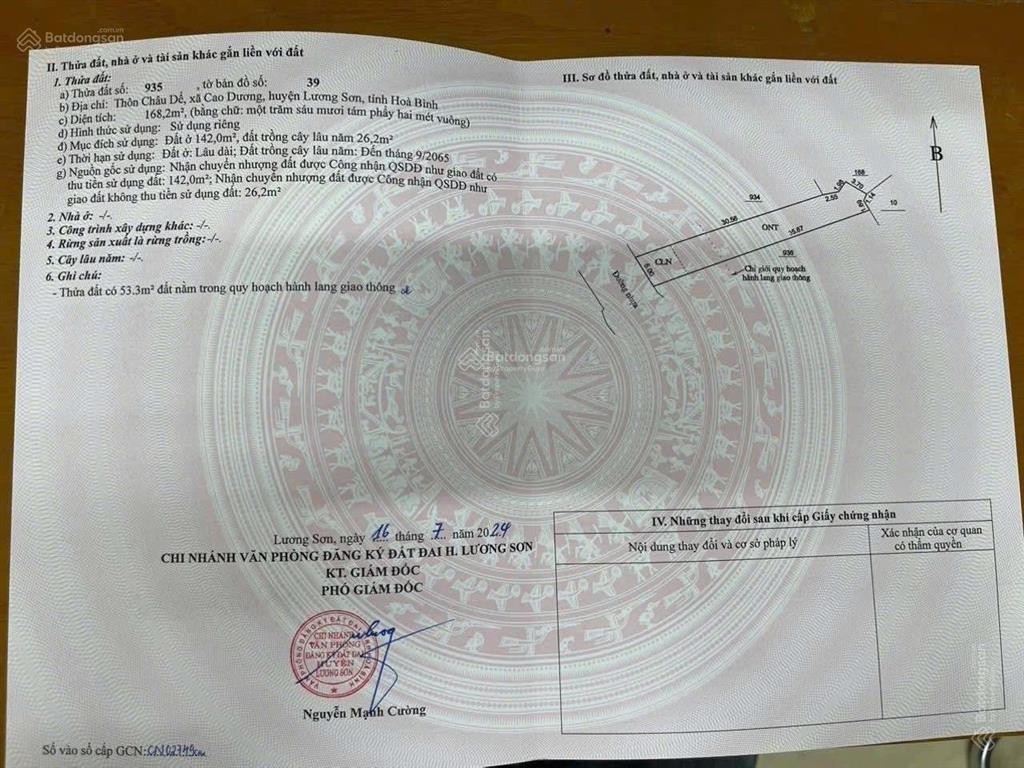 Batdongsan
.com.vn
II. Thửa đất, nhà ở và tài sản khác gắn liền với đất
1. Thửa đất:
a) Thửa đất số: 935 , tờ bản đồ số: 39
b) Địa chỉ: Thôn Châu Dể, xã Cao Dương, huyện Lương Sơn, tỉnh Hoà Bình
c) Diện tích: 168,2m², (bằng chữ: một trăm sáu mươi tám phẩy hai mét vuông)
d) Hình thức sử dụng: Sử dụng riêng
đ) Mục đích sử dụng: Đất ở 142,0m², đất trồng cây lâu năm 26,2m²
e) Thời hạn sử dụng: Đất ở: Lâu dài; Đất trồng cây lâu năm: Đến tháng 9/2065
g) Nguồn gốc sử dụng: Nhận chuyển nhượng đất được Công nhận QSDĐ như giao đất có
thu tiền sử dụng đất: 142,0m²; Nhận chuyển nhượng đất được Công nhận QSDĐ như
giao đất không thu tiền sử dụng đất: 26,2m²
2. Nhà ở: -/-.
3. Công trình xây dựng khác: -/-.
4. Rừng sản xuất là rừng trồng: -/-.
5. Cây lâu năm: -/-.
6. Ghi chú:
- Thửa đất có 53.3m² đất nằm trong quy hoạch hành lang giao thông
III. Sơ đồ thửa đất, nhà ở và tài sản khác gắn liền với đất
B
168
934
2.55
1.98
5.70
1.14
10
30.56
ONT
35.87
936
CLN
5.00
Chỉ giới quy hoạch
hành lang giao thông
Đường nhựa
Batdongsan
.com.vn
by PropertyGuru
Batdongsan
Lương Sơn, ngày 16 tháng 7 năm 2024
CHI NHÁNH VĂN PHÒNG ĐĂNG KÝ ĐẤT ĐAI H. LƯƠNG SƠN
KT. GIÁM ĐỐC
PHÓ GIÁM ĐỐC
VĂN PHÒNG ĐĂNG KÝ ĐẤT ĐAI TỈNH HOÀ BÌNH
CHI NHÁNH
VĂN PHÒNG
ĐĂNG KÝ ĐẤT ĐAI
HUYỆN
LƯƠNG SƠN
Nguyễn Mạnh Cường
Số vào sổ cấp GCN: CN02749
IV. Những thay đổi sau khi cấp Giấy chứng nhận
Nội dung thay đổi và cơ sở pháp lý
Xác nhận của cơ quan
có thẩm quyền
Batdongsan